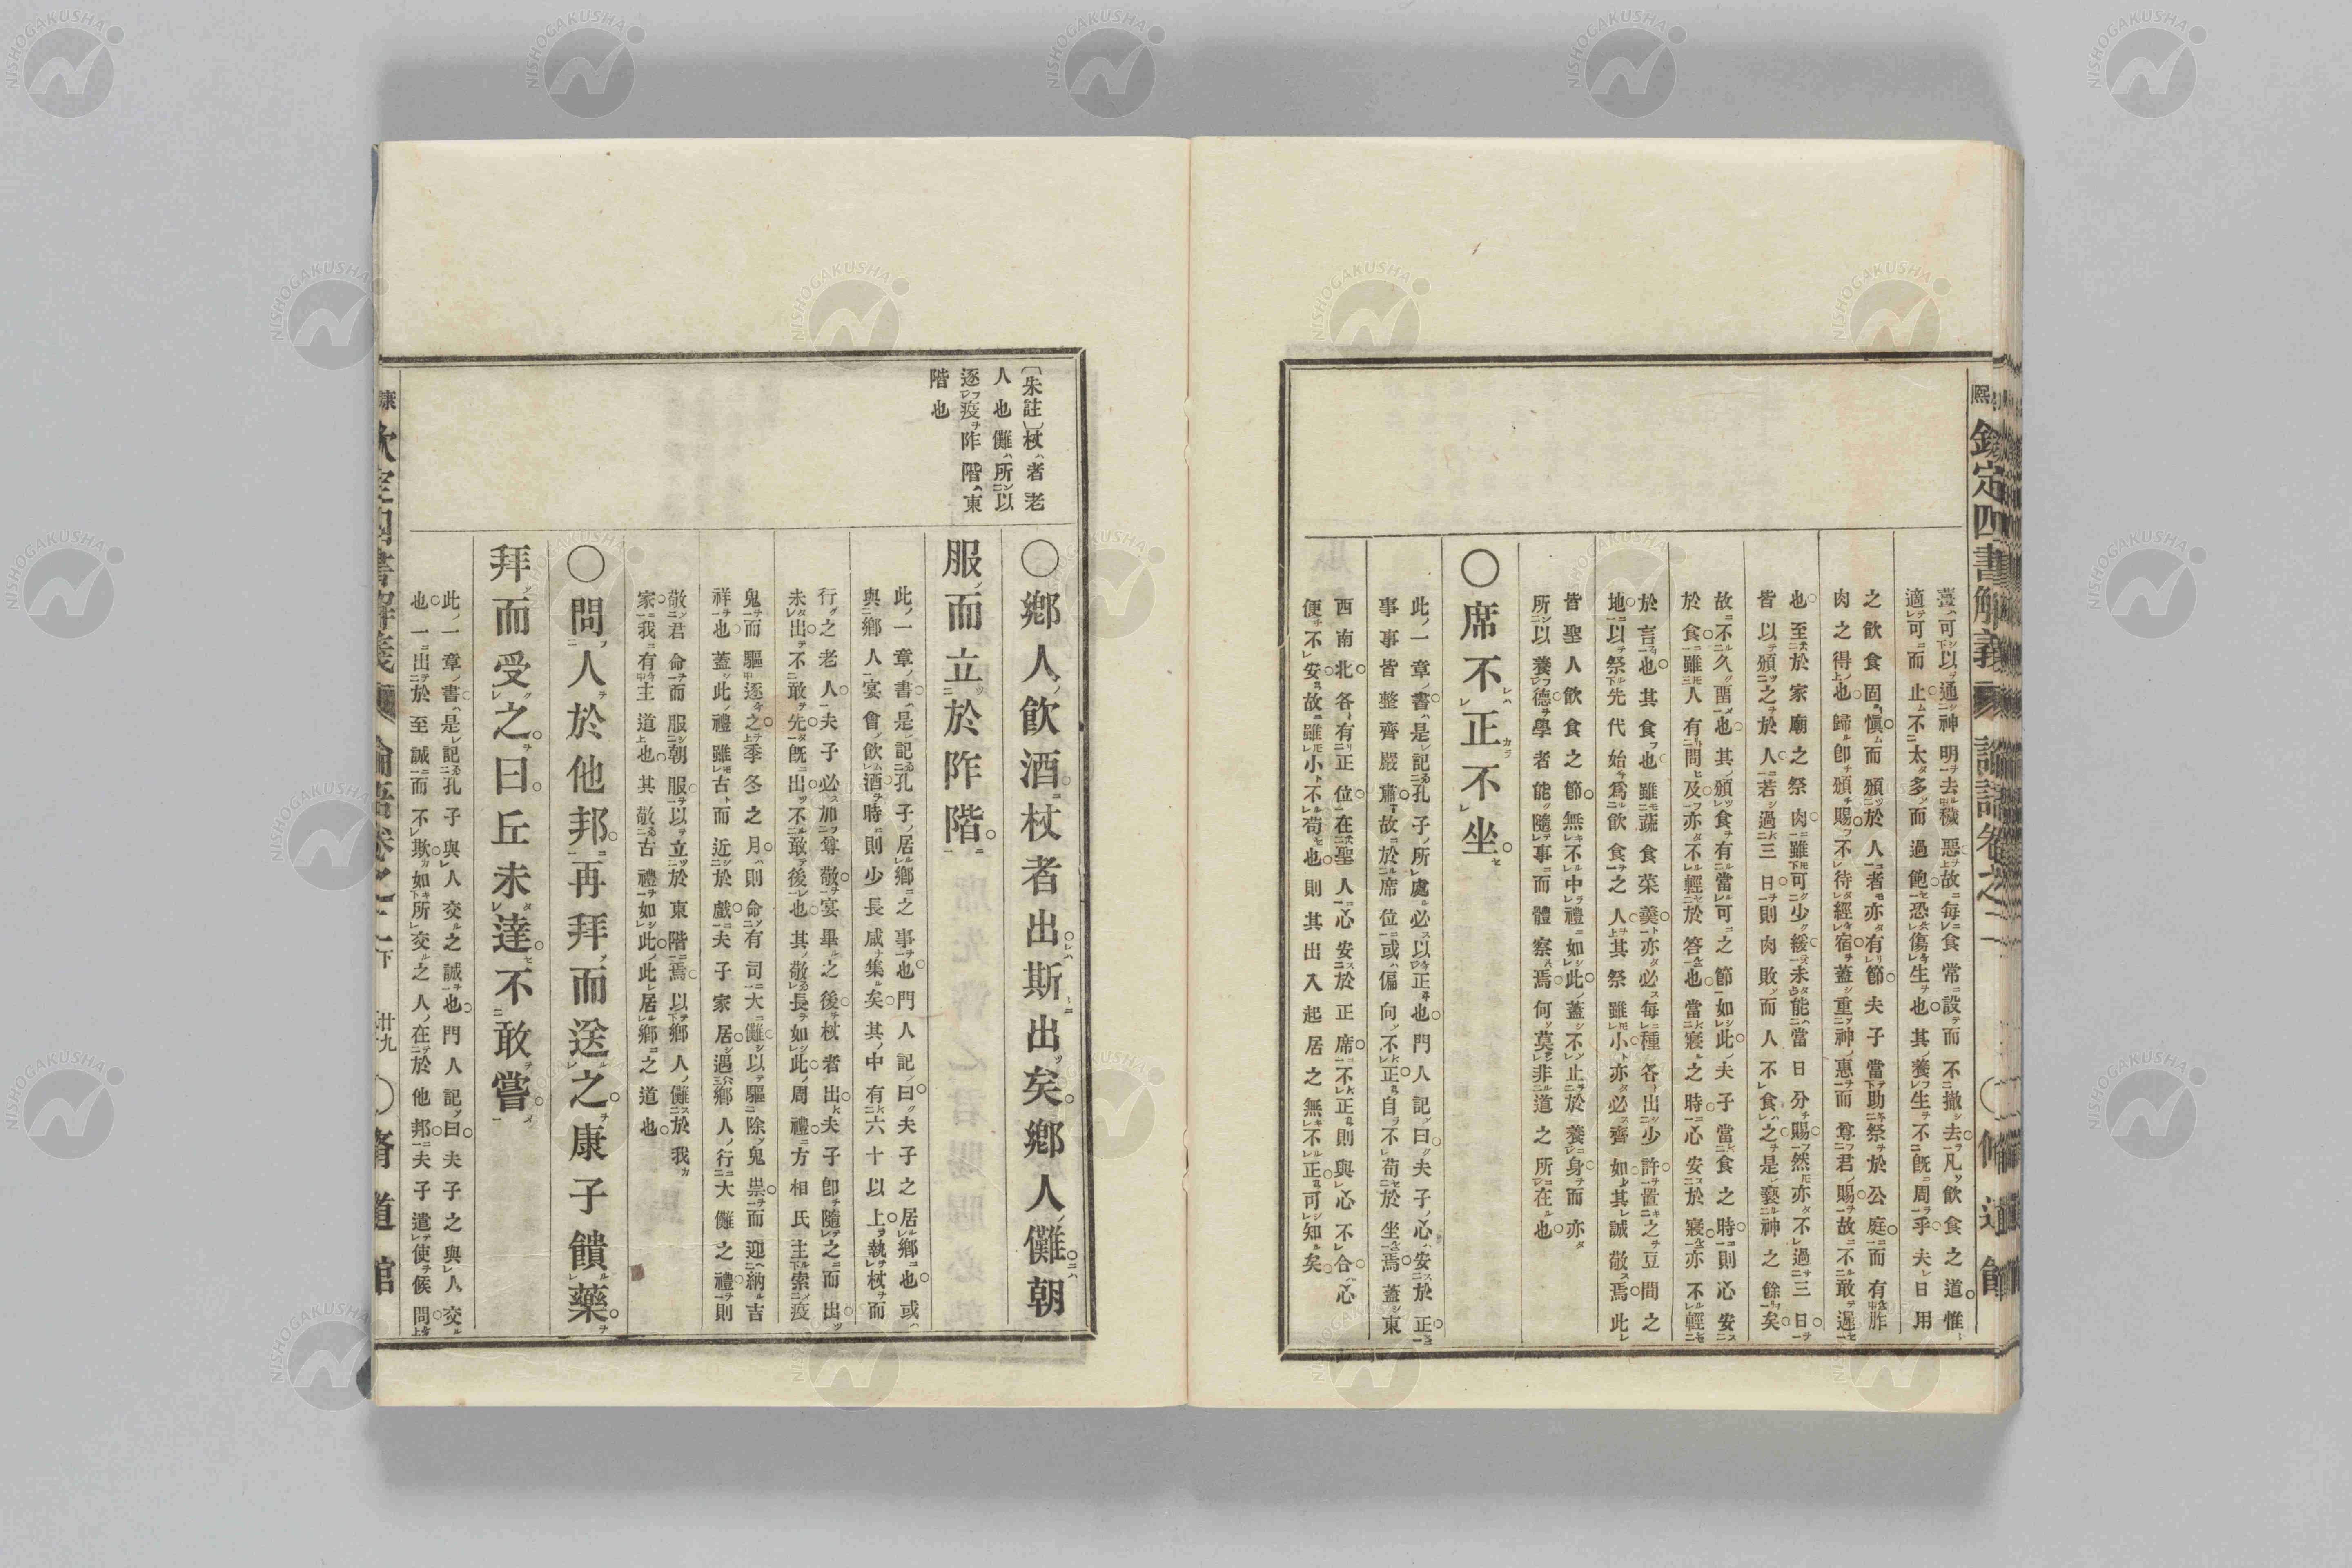 熙 欽定四書解義 論語卷之二 〇脩道館
薑可以通神明去穢惡故每食常設而不撤去凡飲食之道惟
適可而止不太多而過飽恐傷生也其養生不既周乎夫日用
之飲食固愼而頒於人者亦有節夫子當助祭於公庭而有胙
肉之得也歸卽頒賜不待經宿蓋重神惠而尊君賜故不敢遲
也至於家廟之祭肉雖可少緩未能當日分賜然亦不過三日
皆以頒之於人若過三日則肉敗而人不食之是褻神之餘矣
故不久畱也其頒食有當可之節如此夫子當食之時則心安
於食雖人有問及亦不輕於答也當寢之時心安於寢亦不輕
於言也其食也雖蔬食菜羹亦必每種各出少許置之豆間之
地以祭先代始爲飲食之人其祭雖小亦必齊如其誠敬焉此
皆聖人飲食之節無不中禮如此蓋不止於養身而亦
所以養德學者能隨事而體察焉何莫非道之所在也
〇席不正不坐
此一章書是記孔子所處必以正也門人記曰夫子心安於正
事事皆整齊嚴肅故於席位或偏向不正自不苟於坐焉蓋東
西南北各有正位在聖人心安於正席不正則與心不合心
便不安故雖小不苟也則其出入起居之無不正可知矣
〔朱註〕杖者老
人也儺所以
逐疫阼階東
階也
〇鄉人飲酒杖者出斯出矣鄉人儺朝
服而立於阼階
此一章書是記孔子居鄉之事也門人記曰夫子之居鄉也或
與鄉人宴會飲酒時則少長咸集矣其中有六十以上執杖而
行之老人夫子必加尊敬宴畢之後杖者出夫子卽隨之而出
未出不敢先既出不敢後也其敬長如此周禮方相氏主索疫
鬼而驅逐之季冬之月則命有司大儺以驅除鬼祟而迎納吉
祥也蓋此禮雖古而近於戲夫子家居遇鄉人行大儺之禮則
敬君命而服朝服以立於東階焉以鄉人儺於我
家我有主道也其敬古禮如此此居鄉之道也
〇問人於他邦再拜而送之康子饋藥
拜而受之曰丘未達不敢嘗
此一章書是記孔子與人交之誠也門人記曰夫子之與人交
也一出於至誠而不欺如所交之人在於他邦夫子遣使候問
康 欽定四書解義 論語卷之二下 廿九 〇脩道館